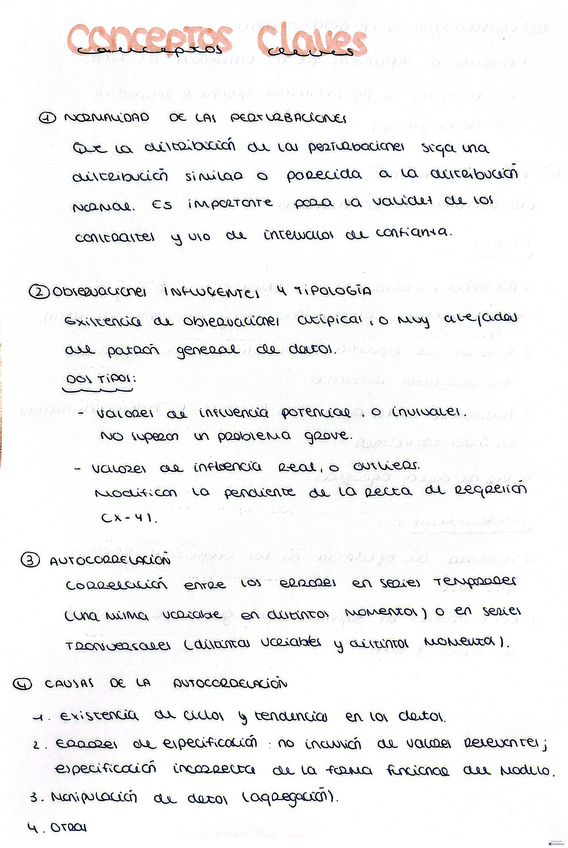 Conceptos Claves
conceptos claves
① NORMALIDAD DE LAS PERTURBACIONES
Que la distribución de las perturbaciones siga una
distribución similar o parecida a la distribución
Normal. Es importante para la validez de los
contrastes y uso de intervalos de confianza.
② Observaciones INFLUYENTES Y TIPOLOGÍA
Existencia de observaciones atípicas, o muy alejadas
del patrón general de datos.
DOS TIPOS:
- valores de influencia potencial, o inusuales.
No suponen un problema grave.
- valores de influencia real, o outliers.
Modifican la pendiente de la recta de regresión
(x-y).
③ AUTOCORRELACIÓN
Correlación entre los errores en series temporales
(una misma variable en distintos momentos) o en series
transversales (distintas variables y distintos momentos).
④ CAUSAS DE LA AUTOCORRELACIÓN
1. existencia de ciclos y tendencias en los datos.
2. errores de especificación: no inclusión de valores relevantes;
especificación incorrecta de la forma funcional del modelo.
3. Manipulación de datos (agregación).
4. Otras